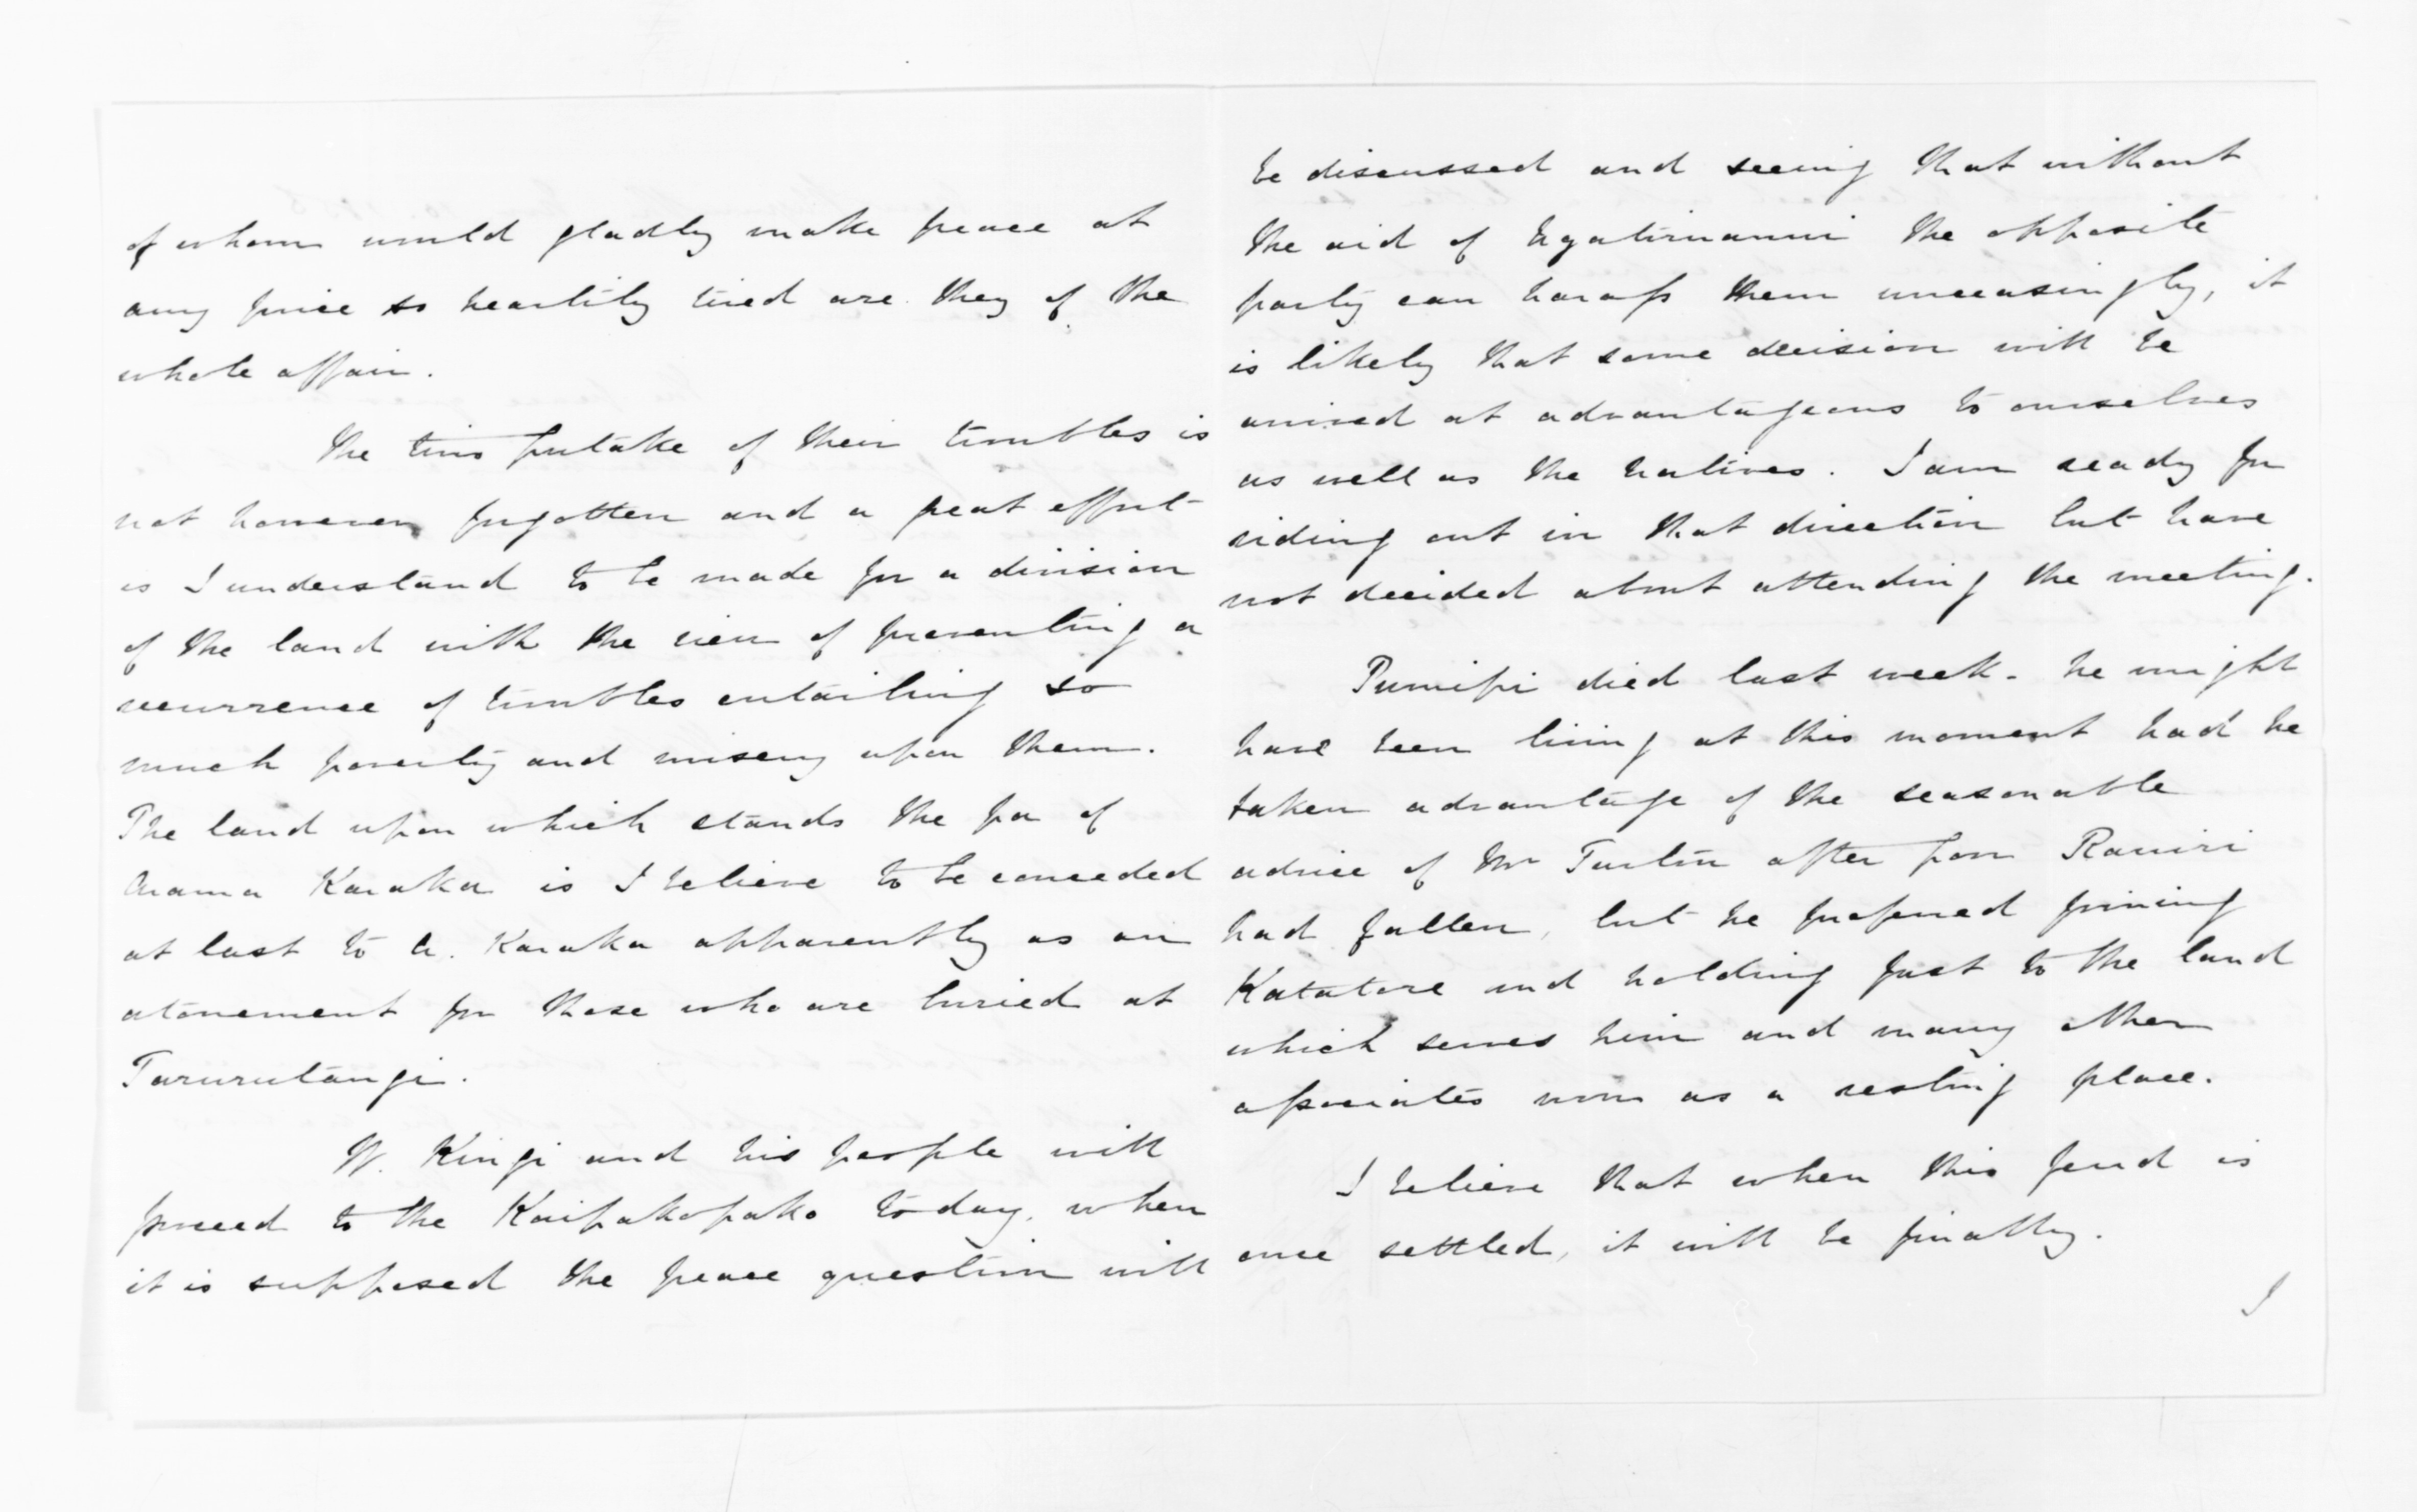 of whom would gladly make peace at
any price so heartily tired are they of the
whole affair.
The tino putake of their troubles is
not however forgotten and a great effort
is I understand to be made for a division
of the land with the view of preventing a
recurrence of troubles entailing so
much poverty and misery upon them.
The land upon which stands the pa of
Arama Karaka is I believe to be conceded
at last to A. Karaka apparently as an
atonement for those who are buried at
Tarurutangi.
W. Kingi and his people will
proceed to the Kaipakopako today, when
it is supposed the peace question will
be discussed and seeing that without
the aid of Ngatiruanui the opposite
party can harass them unceasingly, it
is likely that some decision will be
arrived at advantageous to ourselves
as well as the natives. I am ready for
riding out in that direction but have
not decided about attending the meeting.
Pumipi died last week. he might
have been living at this moment had he
taken advantage of the seasonable
advice of Mr Turton after poor Rawiri
had fallen, but he prefered joining
Katatore and holding fast to the land
which serves him and many other
associates now as a resting place.
I believe that when this feud is
once settled, it will be finally.
I